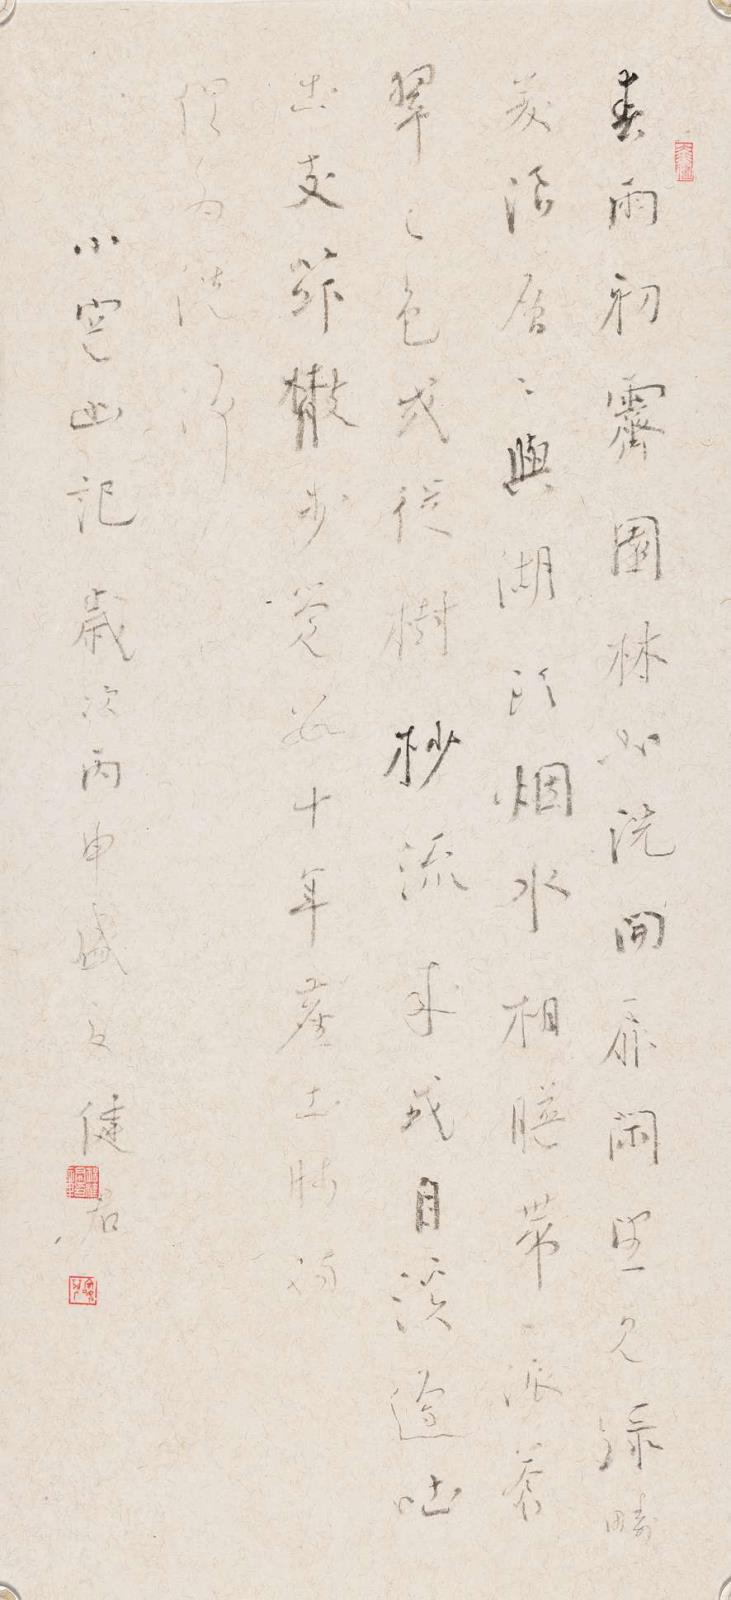 春雨初霽園林如洗開扉閑望見綠疇
麥浪層〻與湖頭烟水相暎帶一派蒼
翠之色或從樹杪流來或自溪邊吐
出支筇散步覺數十年塵土肺腸
俱為洗淨
小窗幽記 歲次丙申盛夏健君